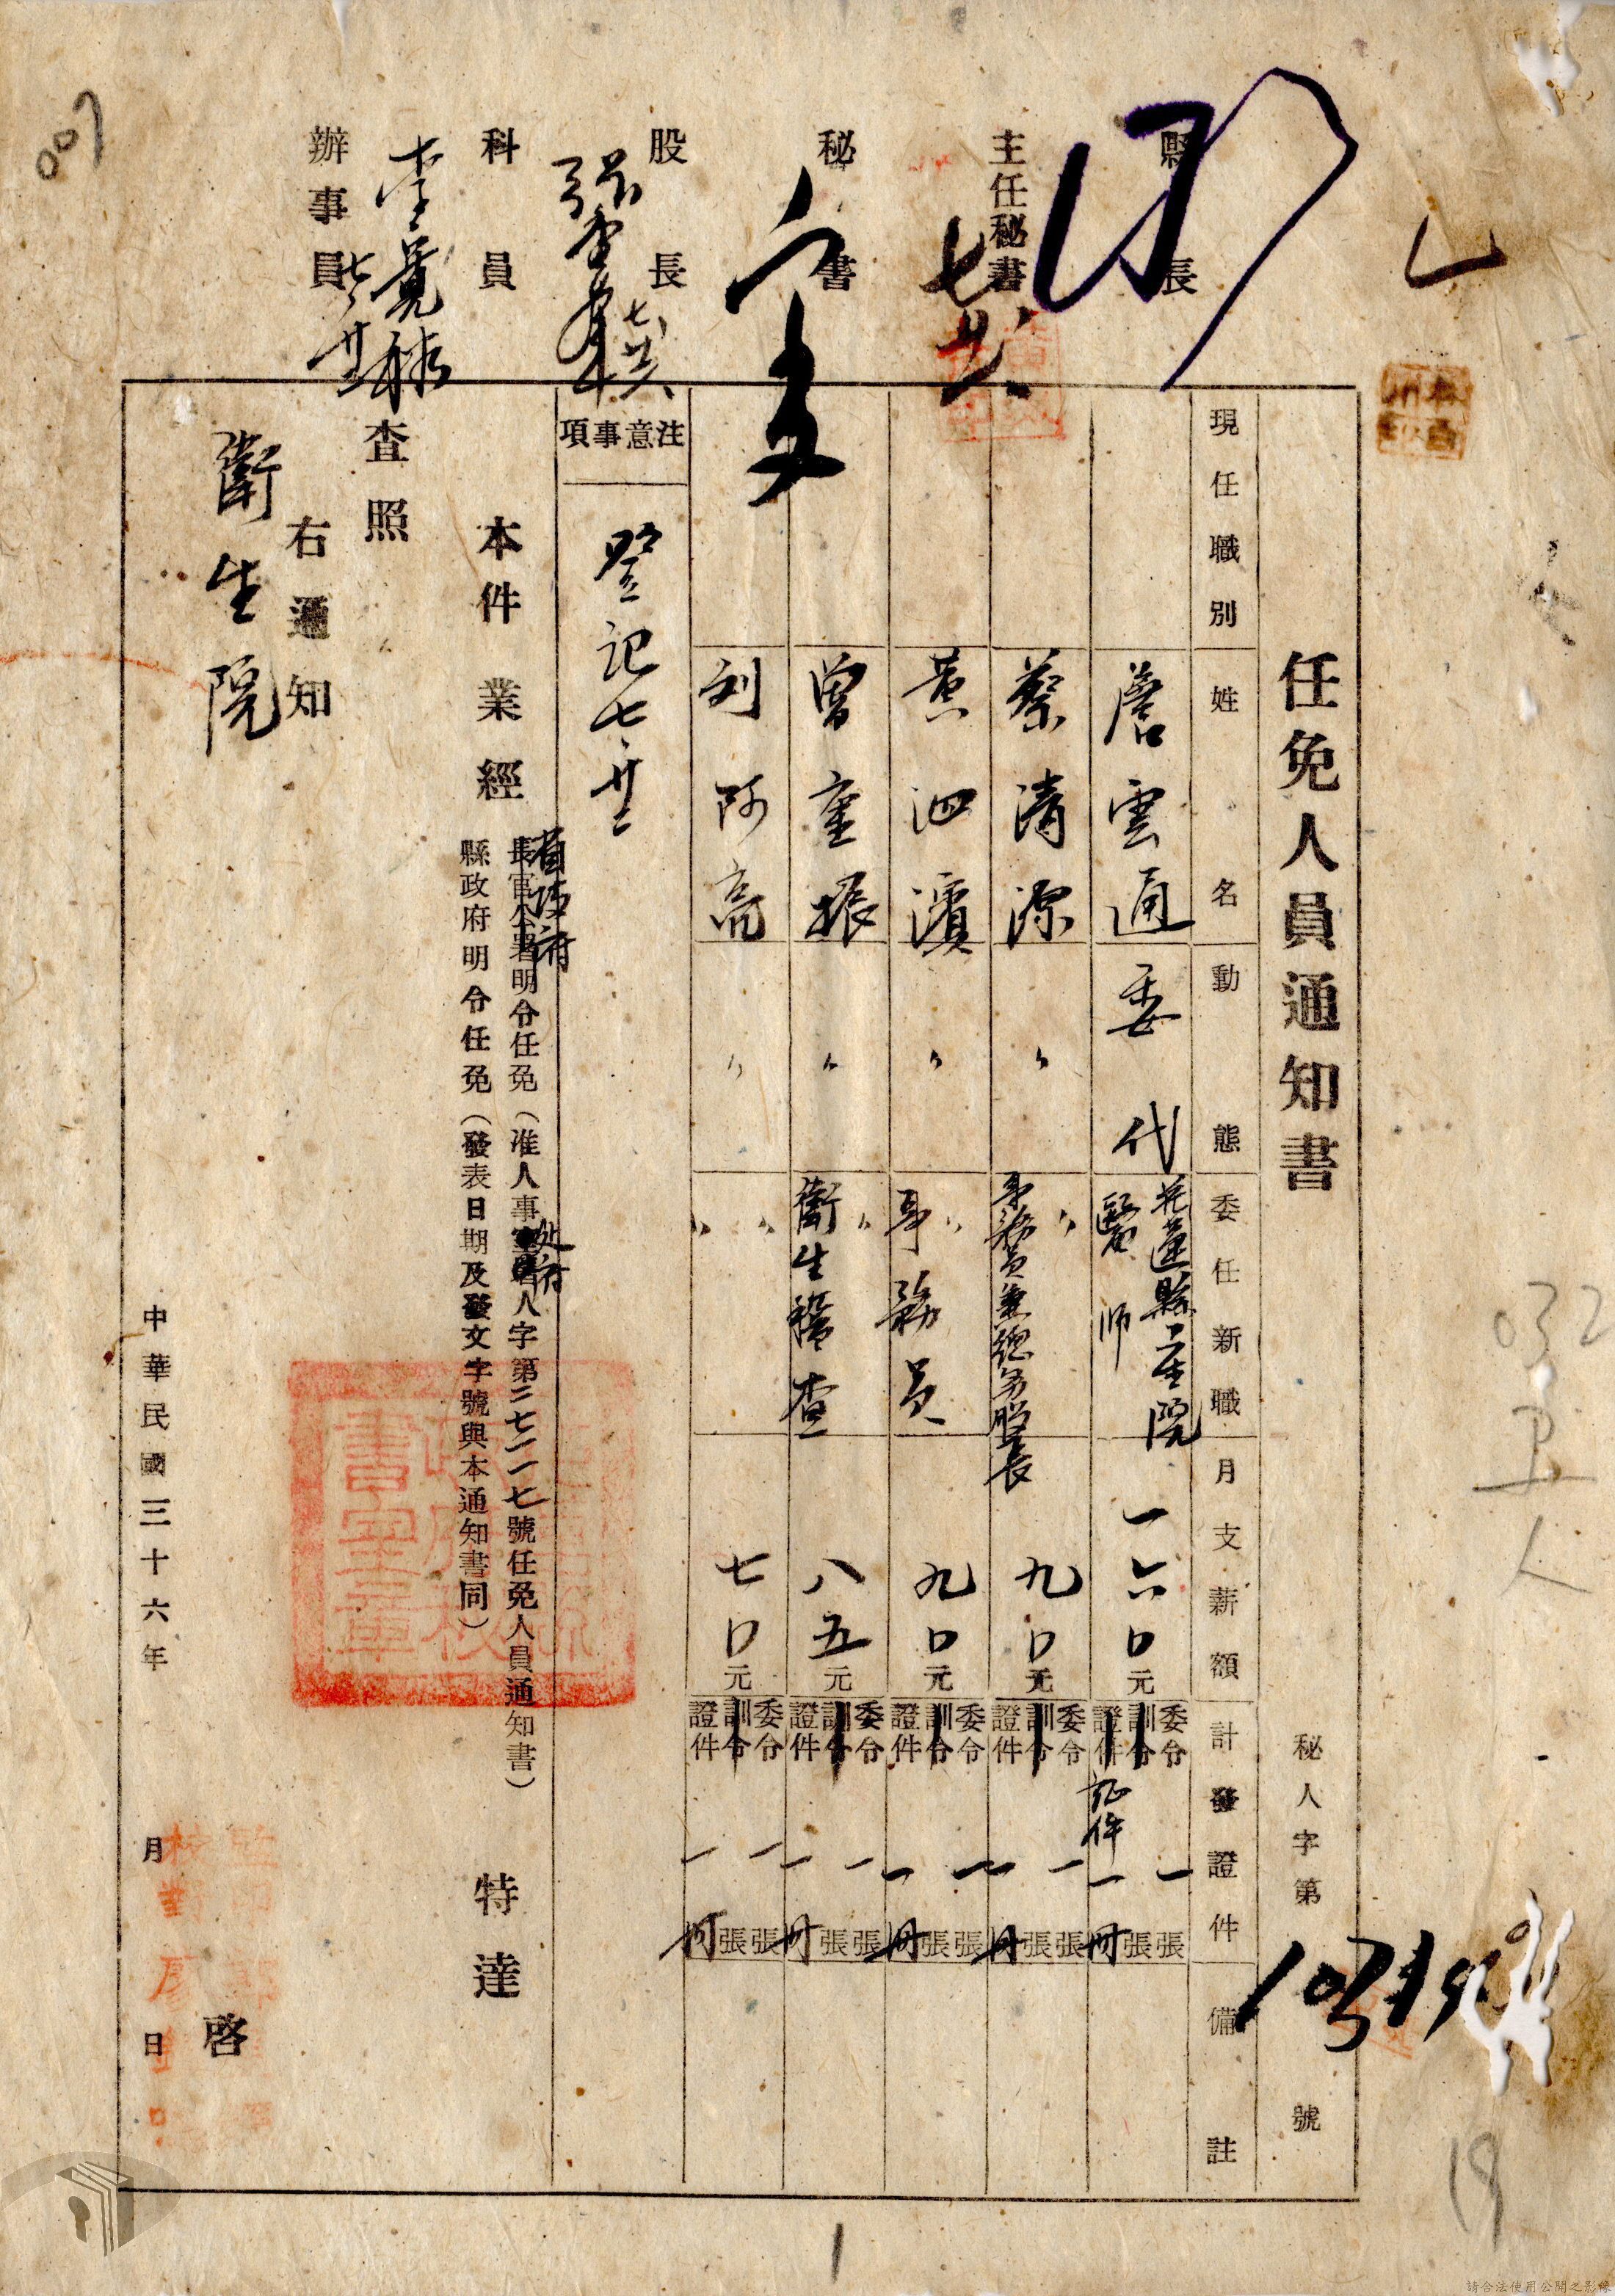 007
縣長
主任秘書
七、廿八
秘書
股長
七、廿八
科員
辦事員
任免人員通知書
秘人字第 號
現任職別
姓名
動態
委任新職
月支薪額
計發證件
備註
詹雲通
委代
花蓮縣衛生院
醫師
一六〇元
委令 一張
訓令 張
證件 証件 一冊
蔡清源
〃
〃
事務員兼總務股長
九〇元
委令 一張
訓令 張
證件 一冊
黃泗濱
〃
〃
事務員
九〇元
委令 一張
訓令 張
證件 一冊
曾重振
〃
〃
衛生稽查
八五元
委令 一張
訓令 張
證件 一冊
刘阿高
〃
〃 〃
七〇元
委令 一張
訓令 張
證件 一冊
注意事項
登記七、廿二
本件業經
長官公署明令任免(准人事室人字第二七一一七號任免人員通知書)
省政府
處
縣政府明令任免(發表日期及發文字號與本通知書同)
特達
查照
右通知
衛生院
啓
中華民國三十六年 月 日
032
19
1
請合法使用公開之影像